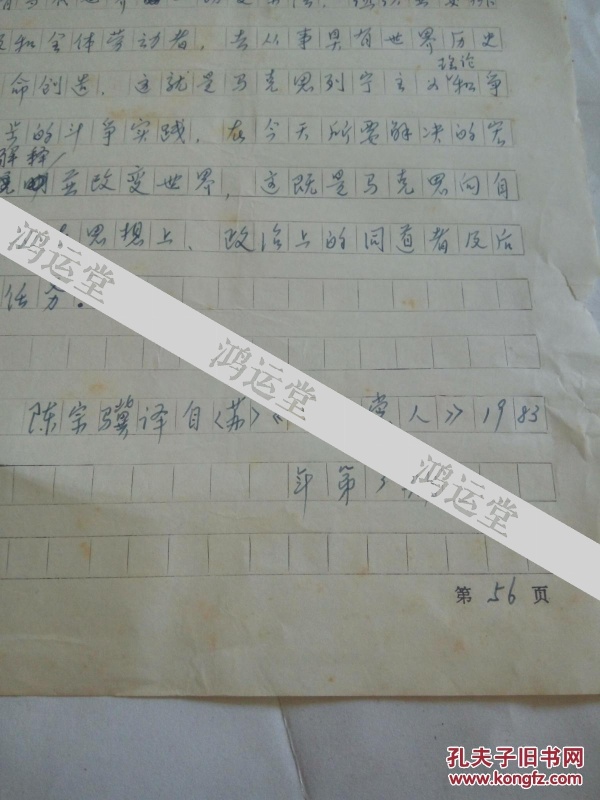 和全体劳动者，去从事具有世界历史
理论
命创造。这就是马克思列宁主义和争
的斗争实践，在今天所要解决的宏
解释
并改变世界，这既是马克思向自
思想上、政治上的同道者及后
任务。
陈宗骥译自《苏》《 党人》1983
年第
第 56 页
鸿运堂
鸿运堂
鸿运堂
孔夫子旧书网
www.kongfz.com